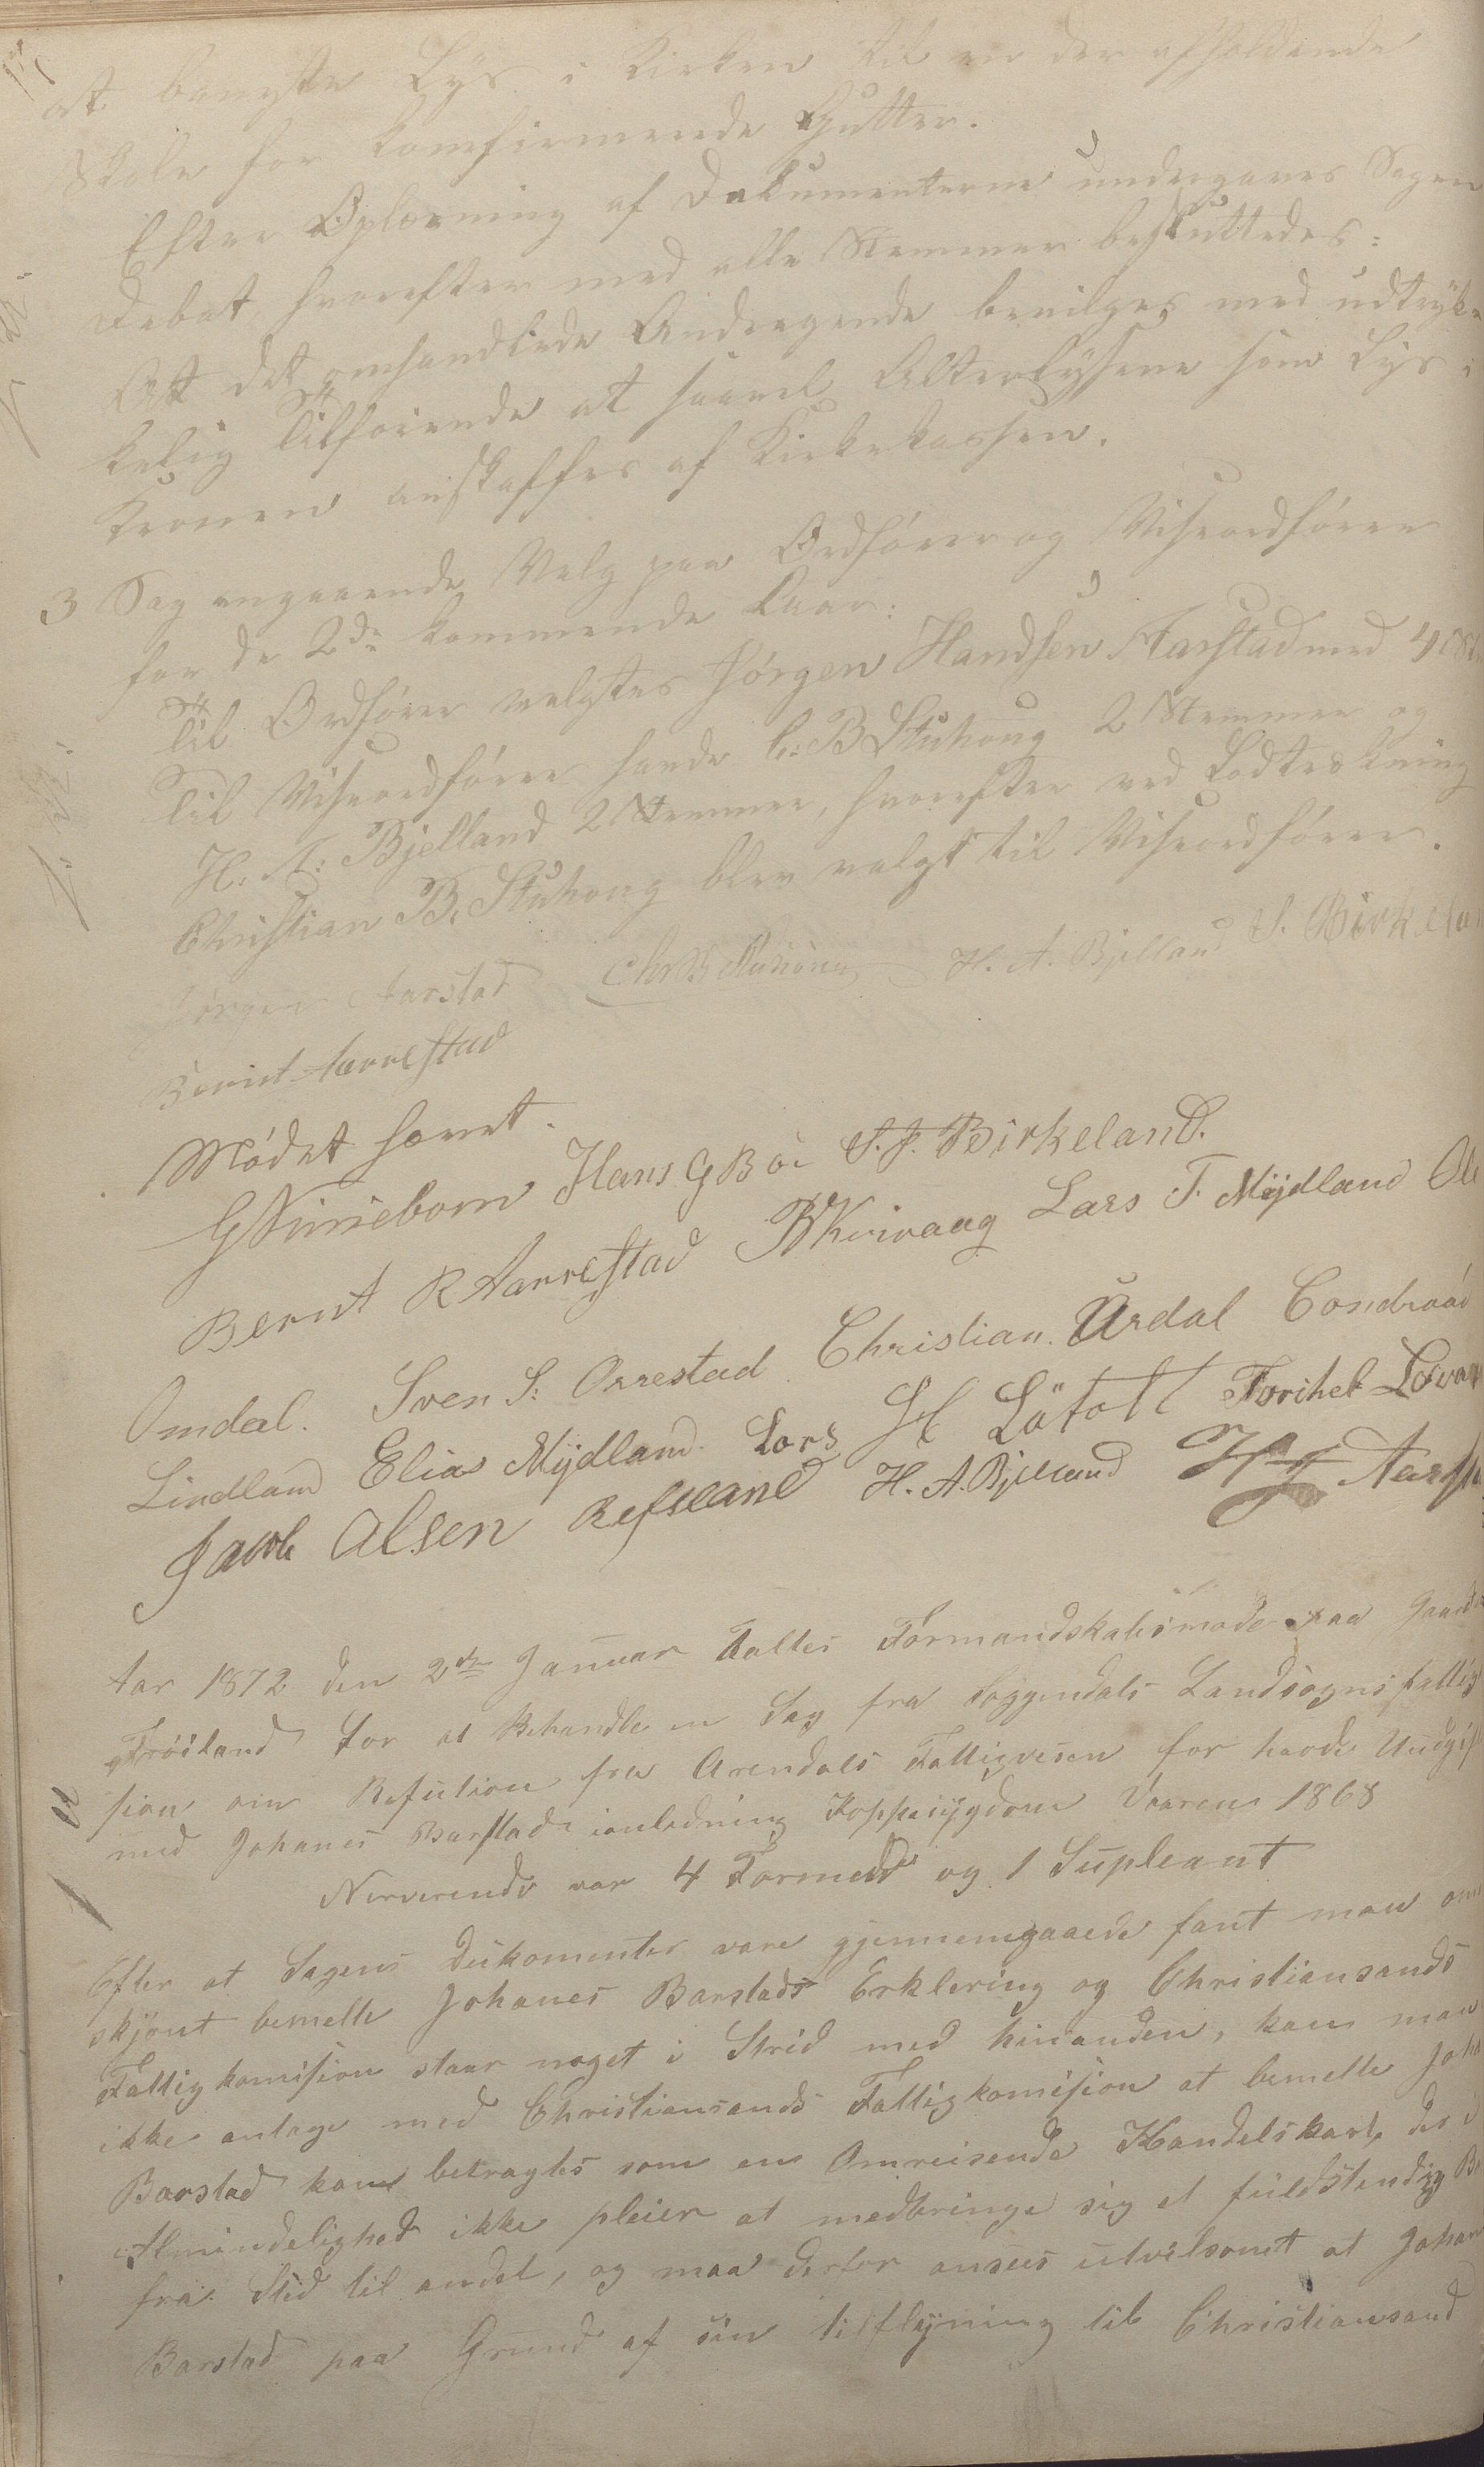 at benytte Lys i Kirken til en der afholdende
Skole for konfirmerede Gutter.
Efter Oplæsning af Dokumenterne undergaves Sagen
Debat, hvorefter med alle Stemmer besluttedes:
At det omhandlede Andragende bevilges med udtryk-
kelig Tilføiende at saavel Alterlysene som Lys i
Kronen anskaffes af Kirkekassen.
3 Sag angaaende Valg paa Ordfører og Viseordfører
for de 2de kommende Aar:
Til Ordfører valgtes Jørgen Handsen Aarstad med 4
Til Viseordfører havde C: B Stuhoug 2 Stemmer og
H: A: Bjelland 2 Stemmer, hvorefter ved Lodtrækning
Christian B. Stuhoug blev valgt til Viseordfører.
Jørgen Aarstad Chr B Stuhoug H. A. Bjelland S. Birkeland
Bernt Aarrestad
Mødet hævet.
Hans G Bøe S. J. Birkeland.
Bernt R Aarrestad B Kvivaag Lars T. Mÿdland Ole
Omdal. Sven S: Orrestad. Christian. Urdal Condraad
Lindland Elias Mÿdland. Lars H Løtoft Torikel
Jacob Olsen Refsland H. A. Bjelland
Aar 1872 den 2den Januar holtes Formandskabsmøde paa Gaarden
Frøiland for at Behandle en Sag fra Soggendals Landsogns fattig
sion om Refusion fra Arendals Fattigvesen for havde Undgif
med Johanes Barstad ianledning Koppesÿgdom Vaaren 1868
Nerverende var 4 Formend og 1 Supleant
Efter at Sagens Dukomenter vare gjennemgaaede fant man om
skjønt bemelte Johanes Barstads Erklering og Christiansands
Fattigkomision staar noget i Strid med hinanden, kan man
ikke antage med Christiansands Fattigkomision at bemelte Joha
Barstad kand betragtes som en Omreisende Handelskarl, der i
Almindelighed ikke pleier at medbringe sig et fuldstendig
fra Sted til andet, og maa derfor ansees utvilsomt at Johan
Barstad paa Grund af sin tilflÿtning til Christiansand